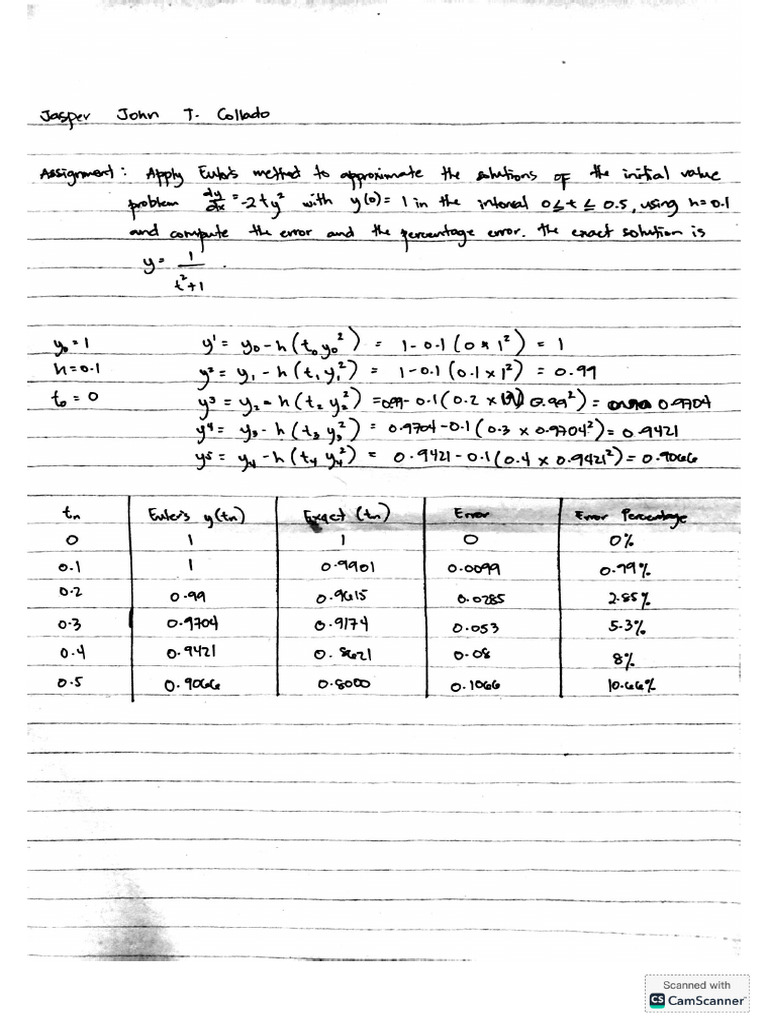 Jasper John T. Collado
Assignment: Apply Euler's method to approximate the solutions of the initial value
problem dy/dx = -2ty² with y(0) = 1 in the interval 0 ≤ t ≤ 0.5, using h=0.1
and compute the error and the percentage error. The exact solution is
y = 1/(t²+1).
y₀ = 1 y¹ = y₀ - h(t₀y₀²) = 1 - 0.1(0 × 1²) = 1
h = 0.1 y² = y₁ - h(t₁y₁²) = 1 - 0.1(0.1 × 1²) = 0.99
t₀ = 0 y³ = y₂ - h(t₂y₂²) = 0.99 - 0.1(0.2 × 0.99²) = 0.9704
y⁴ = y₃ - h(t₃y₃²) = 0.9704 - 0.1(0.3 × 0.9704²) = 0.9421
y⁵ = y₄ - h(t₄y₄²) = 0.9421 - 0.1(0.4 × 0.9421²) = 0.9066
tₙ Euler's y(tₙ) Exact (tₙ) Error Error Percentage
0 1 1 0 0%
0.1 1 0.9901 0.0099 0.99%
0.2 0.99 0.9615 0.0285 2.85%
0.3 0.9704 0.9174 0.053 5.3%
0.4 0.9421 0.8621 0.08 8%
0.5 0.9066 0.8000 0.1066 10.66%
Scanned with
CS CamScanner